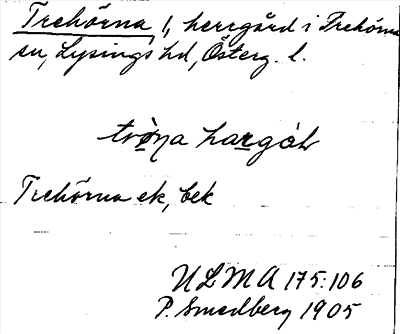 Trehörna, 1, herrgård i Trehörna
sn, Lysings hd, Österg. l.
trö̀ṇa hargȧḷ
Trehörna ek, bek
ULMA 175:106
P. Smedberg 1905